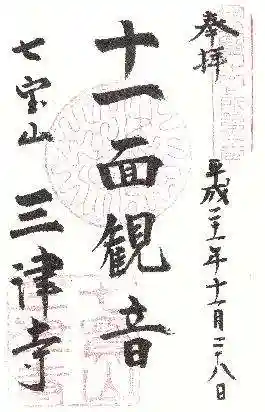 奉拝
平成二十一年十一月二十八日
十一面観音
七宝山 三津寺